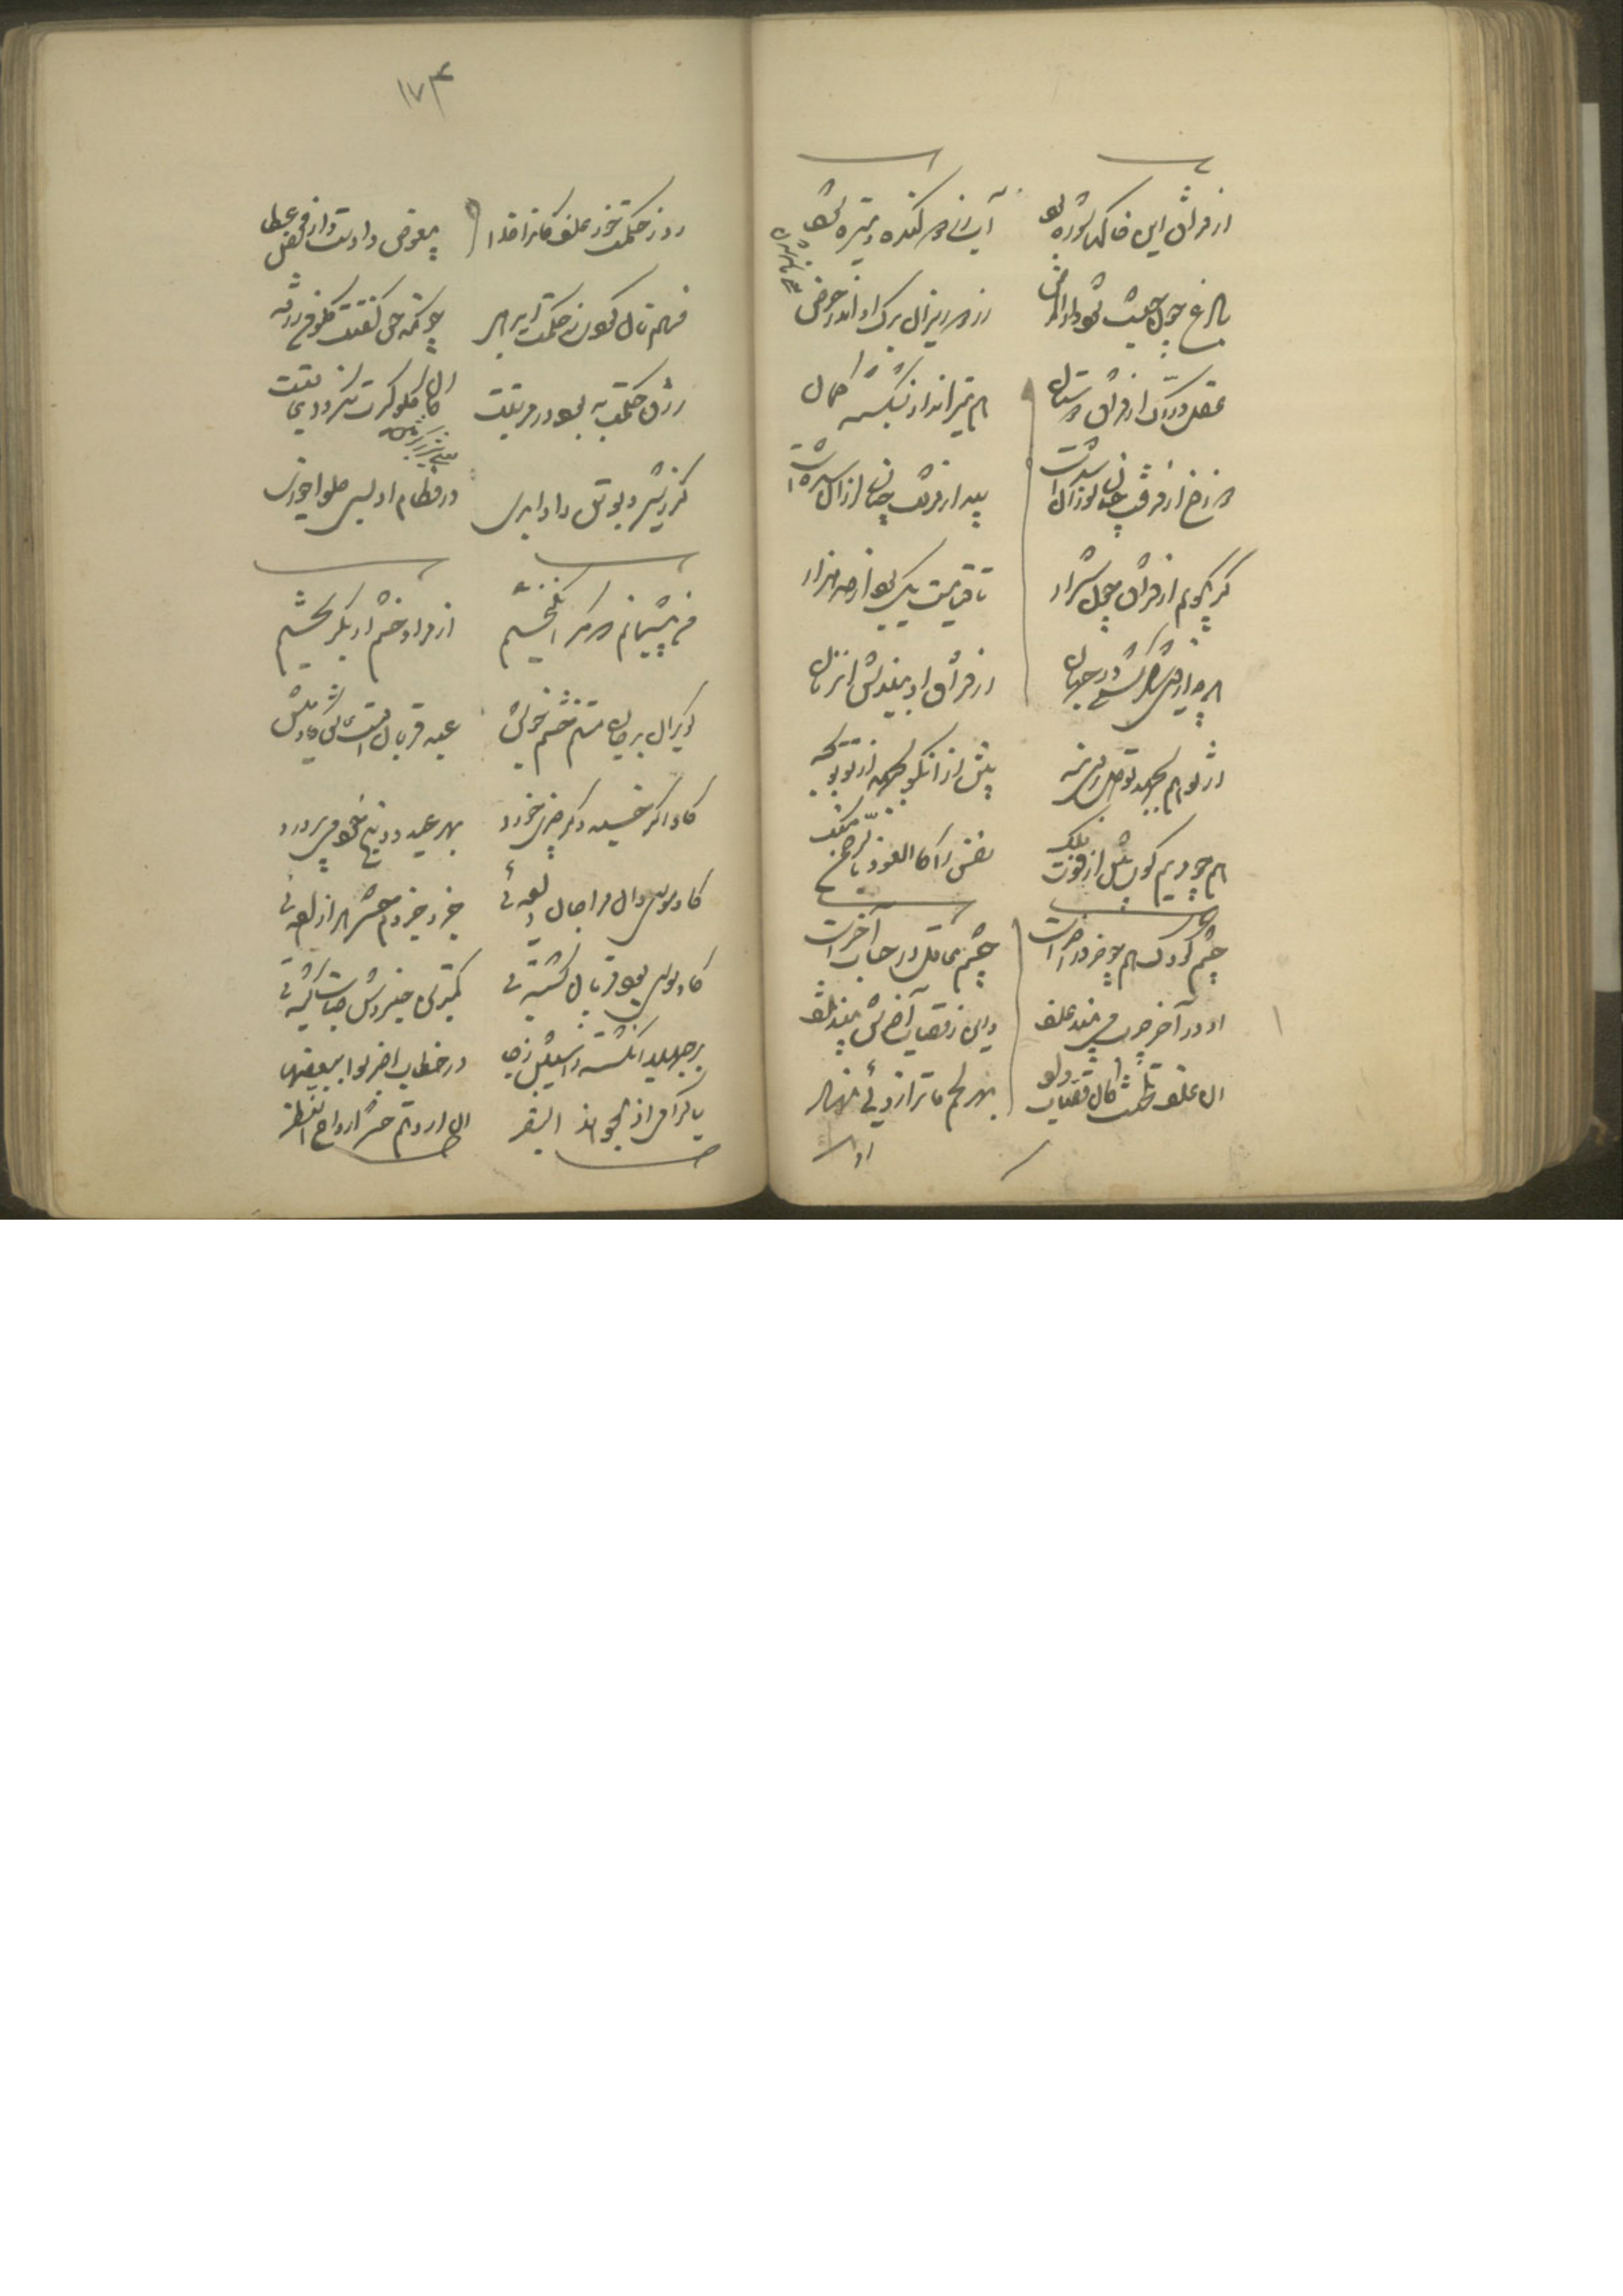 از فراق این خاکها شوره بود
آب زرد و گنده و تیره شود
باغ چون جنت شود دار المرض
زرد و ریزان برگ او اندر حرض
عقل دراک از فراق دوستان
هم تیر انداز بشکسته کمان
دوزخ از فرقت چنان سوزان شدست
پیر از فرقت چنان لرزان شدست
گر بگویم از فراق چون شرار
تا قیامت یک بود از صد هزار
هرچه از وی شاد گشتی در جهان
از فراق او بیندیش آن زمان
از تو هم بجهد تو دل بر وی منه
پیش از آن کو بجهد از تو تو بجه
همچو مریم گوی پیش از فوت ملک
نقش را کالعوذ بالرحمن منک
چشم کودک همچو خر در آخرست
چشم عاقل در حساب آخرست
او در آخر چرب می بیند علف
وین ز قصاب آخرش بیند تلف
آن علف تلخست کان قصاب داد
بهر لحم ما ترازویی نهاد
۱۷۴
رو ز حکمت خور علف کانرا خدا
بیغرض دادست از محض عطا
فهم نان کردی نه حکمت ای رهی
چونکه حق گفتت کلوا من رزقه
رزق حکمت به بود در مرتبت
کان گلوگیرت نباشد عاقبت
گر ز شیر دیو تن را وا بری
در فطام او بسی حلوا خوری
من پشیمانم که مکر انگیختم
از مراد خشم او بگریختم
گیر آن بر جان منم خشم خویش
عید قربان اوست و عاشق گاومیش
گاو اگر خسپد و گر چیزی خورد
بهر عید و ذبح خود می پرورد
گاو موسی دان مرا جان داده‌ئی
جزو جزوم حشر هر آزاده‌ئی
گاو موسی بود قربان گشته‌ئی
کمترین جزوش حیات کشته‌ئی
برجهید آن کشته ز آسیبش ز جا
در خطاب اضربوه ببعضها
یا کرامی اذبحوا هذا البقر
ان اردتم حشر ارواح النظر